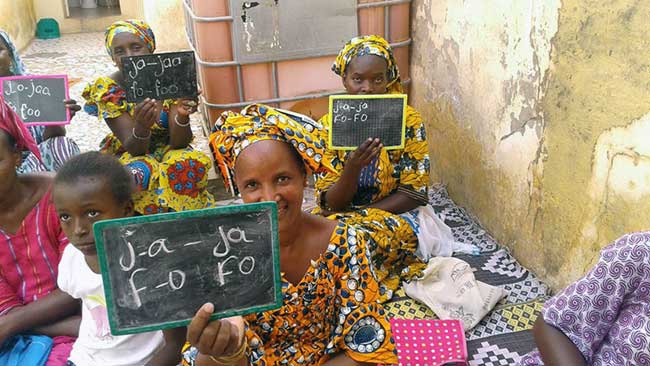 Jo-Jaa
fo-foo
ja-jaa
fo-foo
j-a-ja
Fo-Fo
j-a-ja
F-o Fo